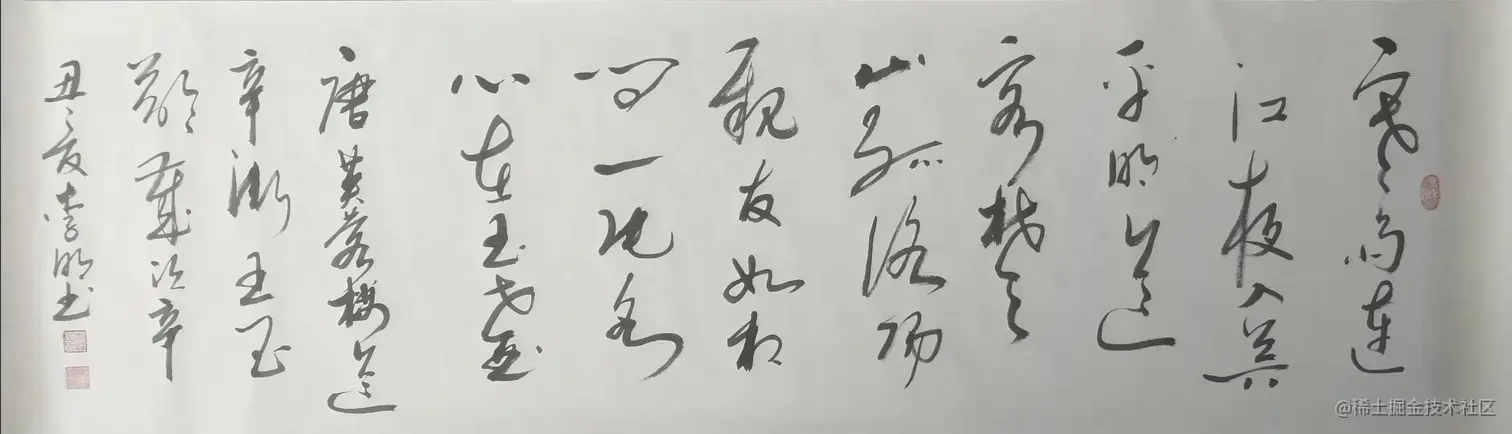 寒雨连
江夜入吴
平明送
客楚
山孤洛阳
亲友如相
问一片冰
心在玉壶
唐芙蓉楼送
辛渐王昌
龄岁次辛
丑之夏李明书
@稀土掘金技术社区